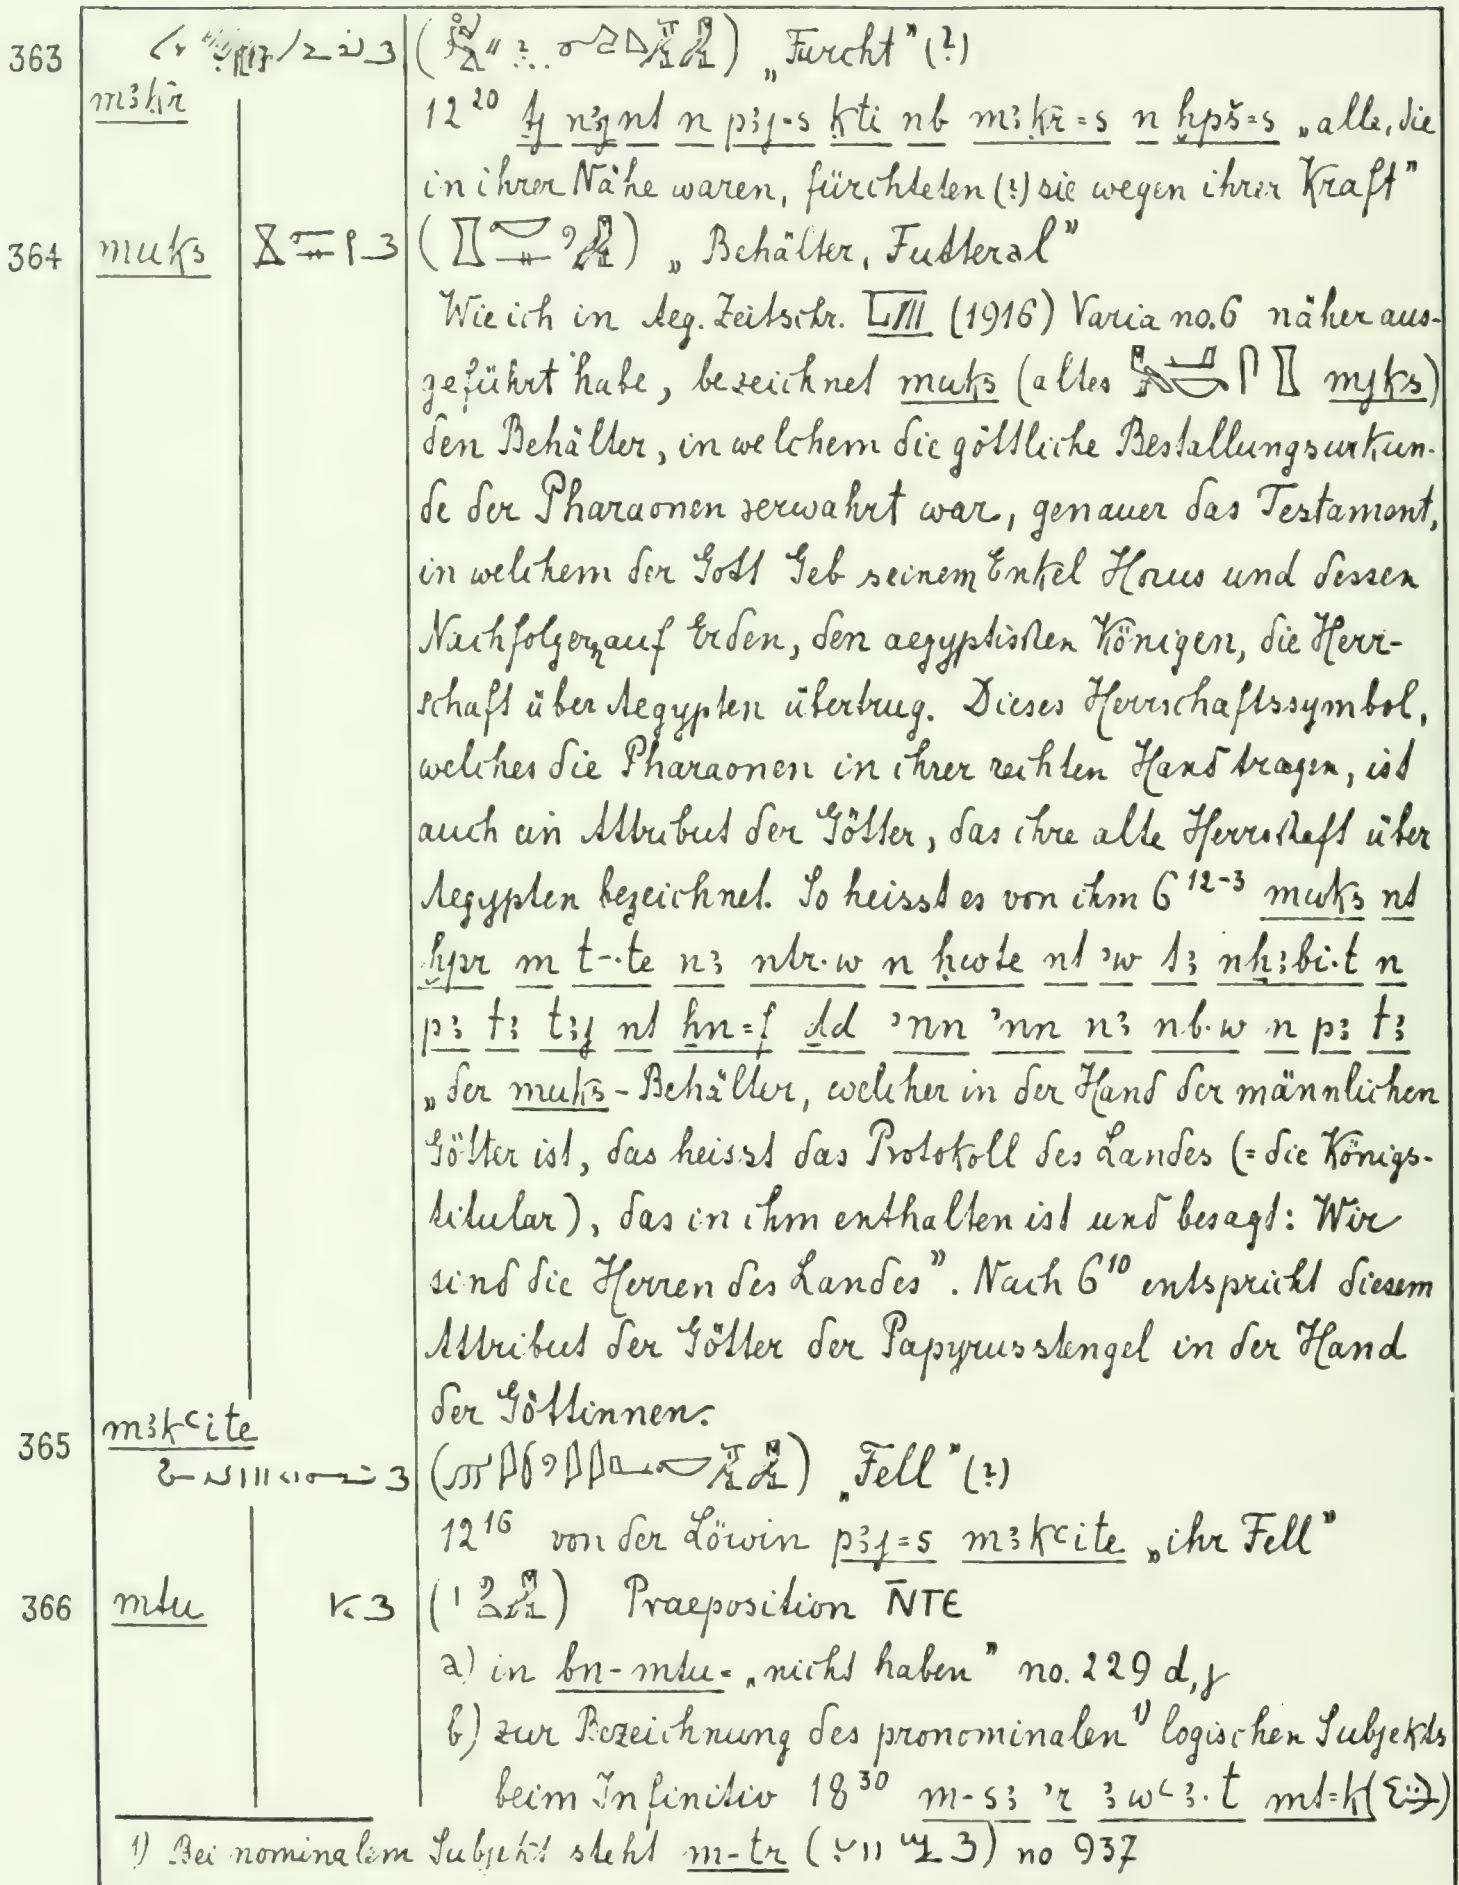 363 „Furcht” (?)
mꜣḳr 12²⁰ nꜣy nt n pꜣj=s ḳti nb mꜣḳr=s n ḫpš=s „alle, die
in ihrer Nähe waren, fürchteten (?) sie wegen ihrer Kraft”
364 muks „Behälter, Futteral”
Wie ich in Aeg. Zeitschr. LIII (1916) Varia no. 6 näher aus-
geführt habe, bezeichnet muks (altes mjks)
den Behälter, in welchem die göttliche Bestallungsurkun-
de der Pharaonen verwahrt war, genauer das Testament,
in welchem der Gott Geb seinem Enkel Horus und dessen
Nachfolgern auf Erden, den aegyptischen Königen, die Herr-
schaft über Aegypten übertrug. Dieses Herrschaftssymbol,
welches die Pharaonen in ihrer rechten Hand tragen, ist
auch ein Attribut der Götter, das ihre alte Herrschaft über
Aegypten bezeichnet. So heisst es von ihm 6¹²⁻³ muks nt
ḫpr m t-.te nꜣ ntr.w n ḥwte nt ꜥw tꜣ nḫꜣbi.t n
pꜣ tꜣ tꜣj nt ẖn=f ḏd ꜥnn ꜥnn nꜣ nb.w n pꜣ tꜣ
„der muks-Behälter, welcher in der Hand der männlichen
Götter ist, das heisst das Protokoll des Landes (= die Königs-
titular), das in ihm enthalten ist und besagt: Wir
sind die Herren des Landes”. Nach 6¹⁰ entspricht diesem
Attribut der Götter der Papyrusstengel in der Hand
der Göttinnen.
365 mꜣkꜥite „Fell” (?)
12¹⁶ von der Löwin pꜣj=s mꜣkꜥite „ihr Fell”
366 mtu Praeposition N̄TE
a) in bn-mtu= „nicht haben” no. 229 d, f
b) zur Bezeichnung des pronominalen ¹⁾ logischen Subjekts
beim Infinitiv 18³⁰ m-sꜣ ꜥr ꜣwꜥꜣ.t mt=k
1) Bei nominalem Subjekt steht m-tr no 937